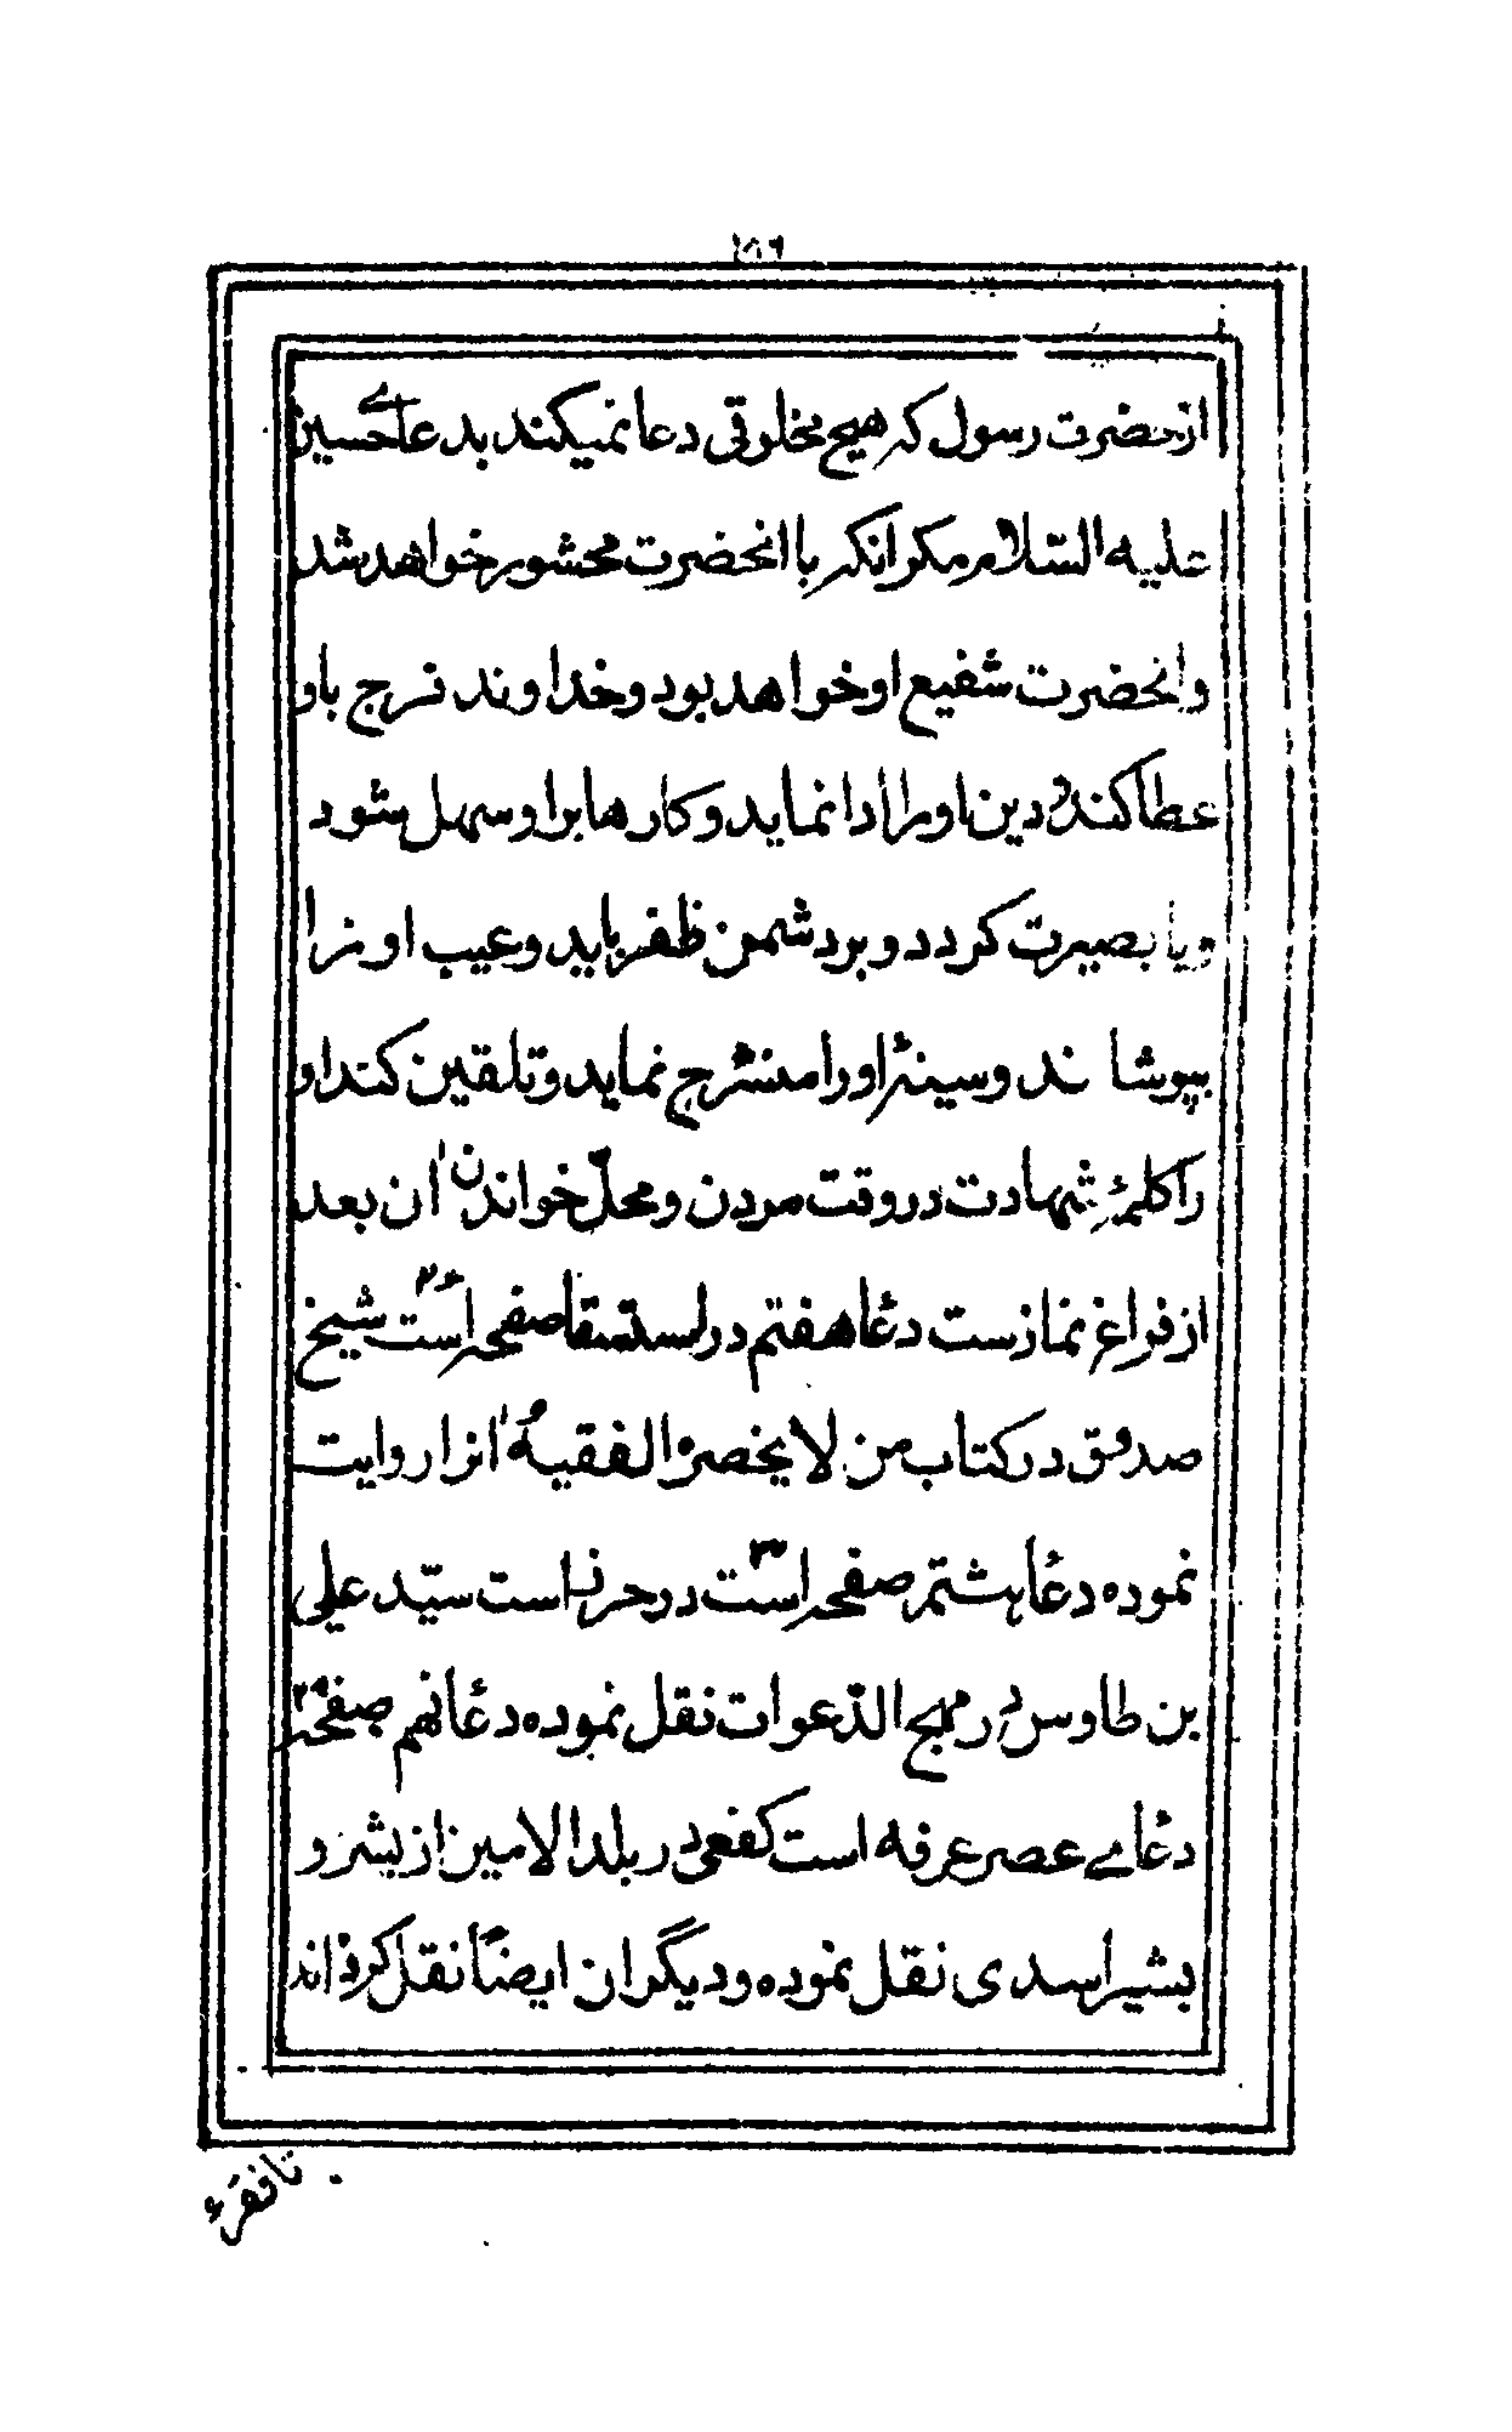 از حضرت رسول که هیچ مخلوقی دعا نمیکند بدعاے حسین
علیه السّلام مکر انکه با انحضرت محشور خواهد شد
وانحضرت شفیع او خواهد بود و خداوند فرج باو
عطا کند و دین او را ادا نماید و کارها برا و سهل شود
و با بصیرت کردد و بر دشمن ظفر یابد و عیب او را
بپوشاند و سینهٔ او را منشرح نماید و تلقین کند او
را کلمهٔ شهادت در وقت مردن و محلّ خواندن ان بعد
از فراغ نماز ست دعا هفتم در استسقا صفحه است شیخ
صدوق در کتاب من لا یحضره الفقیه انرا روایت
نموده دعا هشتم صفحه است در حرز است سیّد علی
بن طاوس در مهج الدّعوات نقل نموده دعا نهم صفحه
دعاے عصر عرفه است کفعمی در بلد الامین از بشر و
بشیر اسدی نقل نموده و دیگران ایضاً نقل کرده اند
تا فقرء